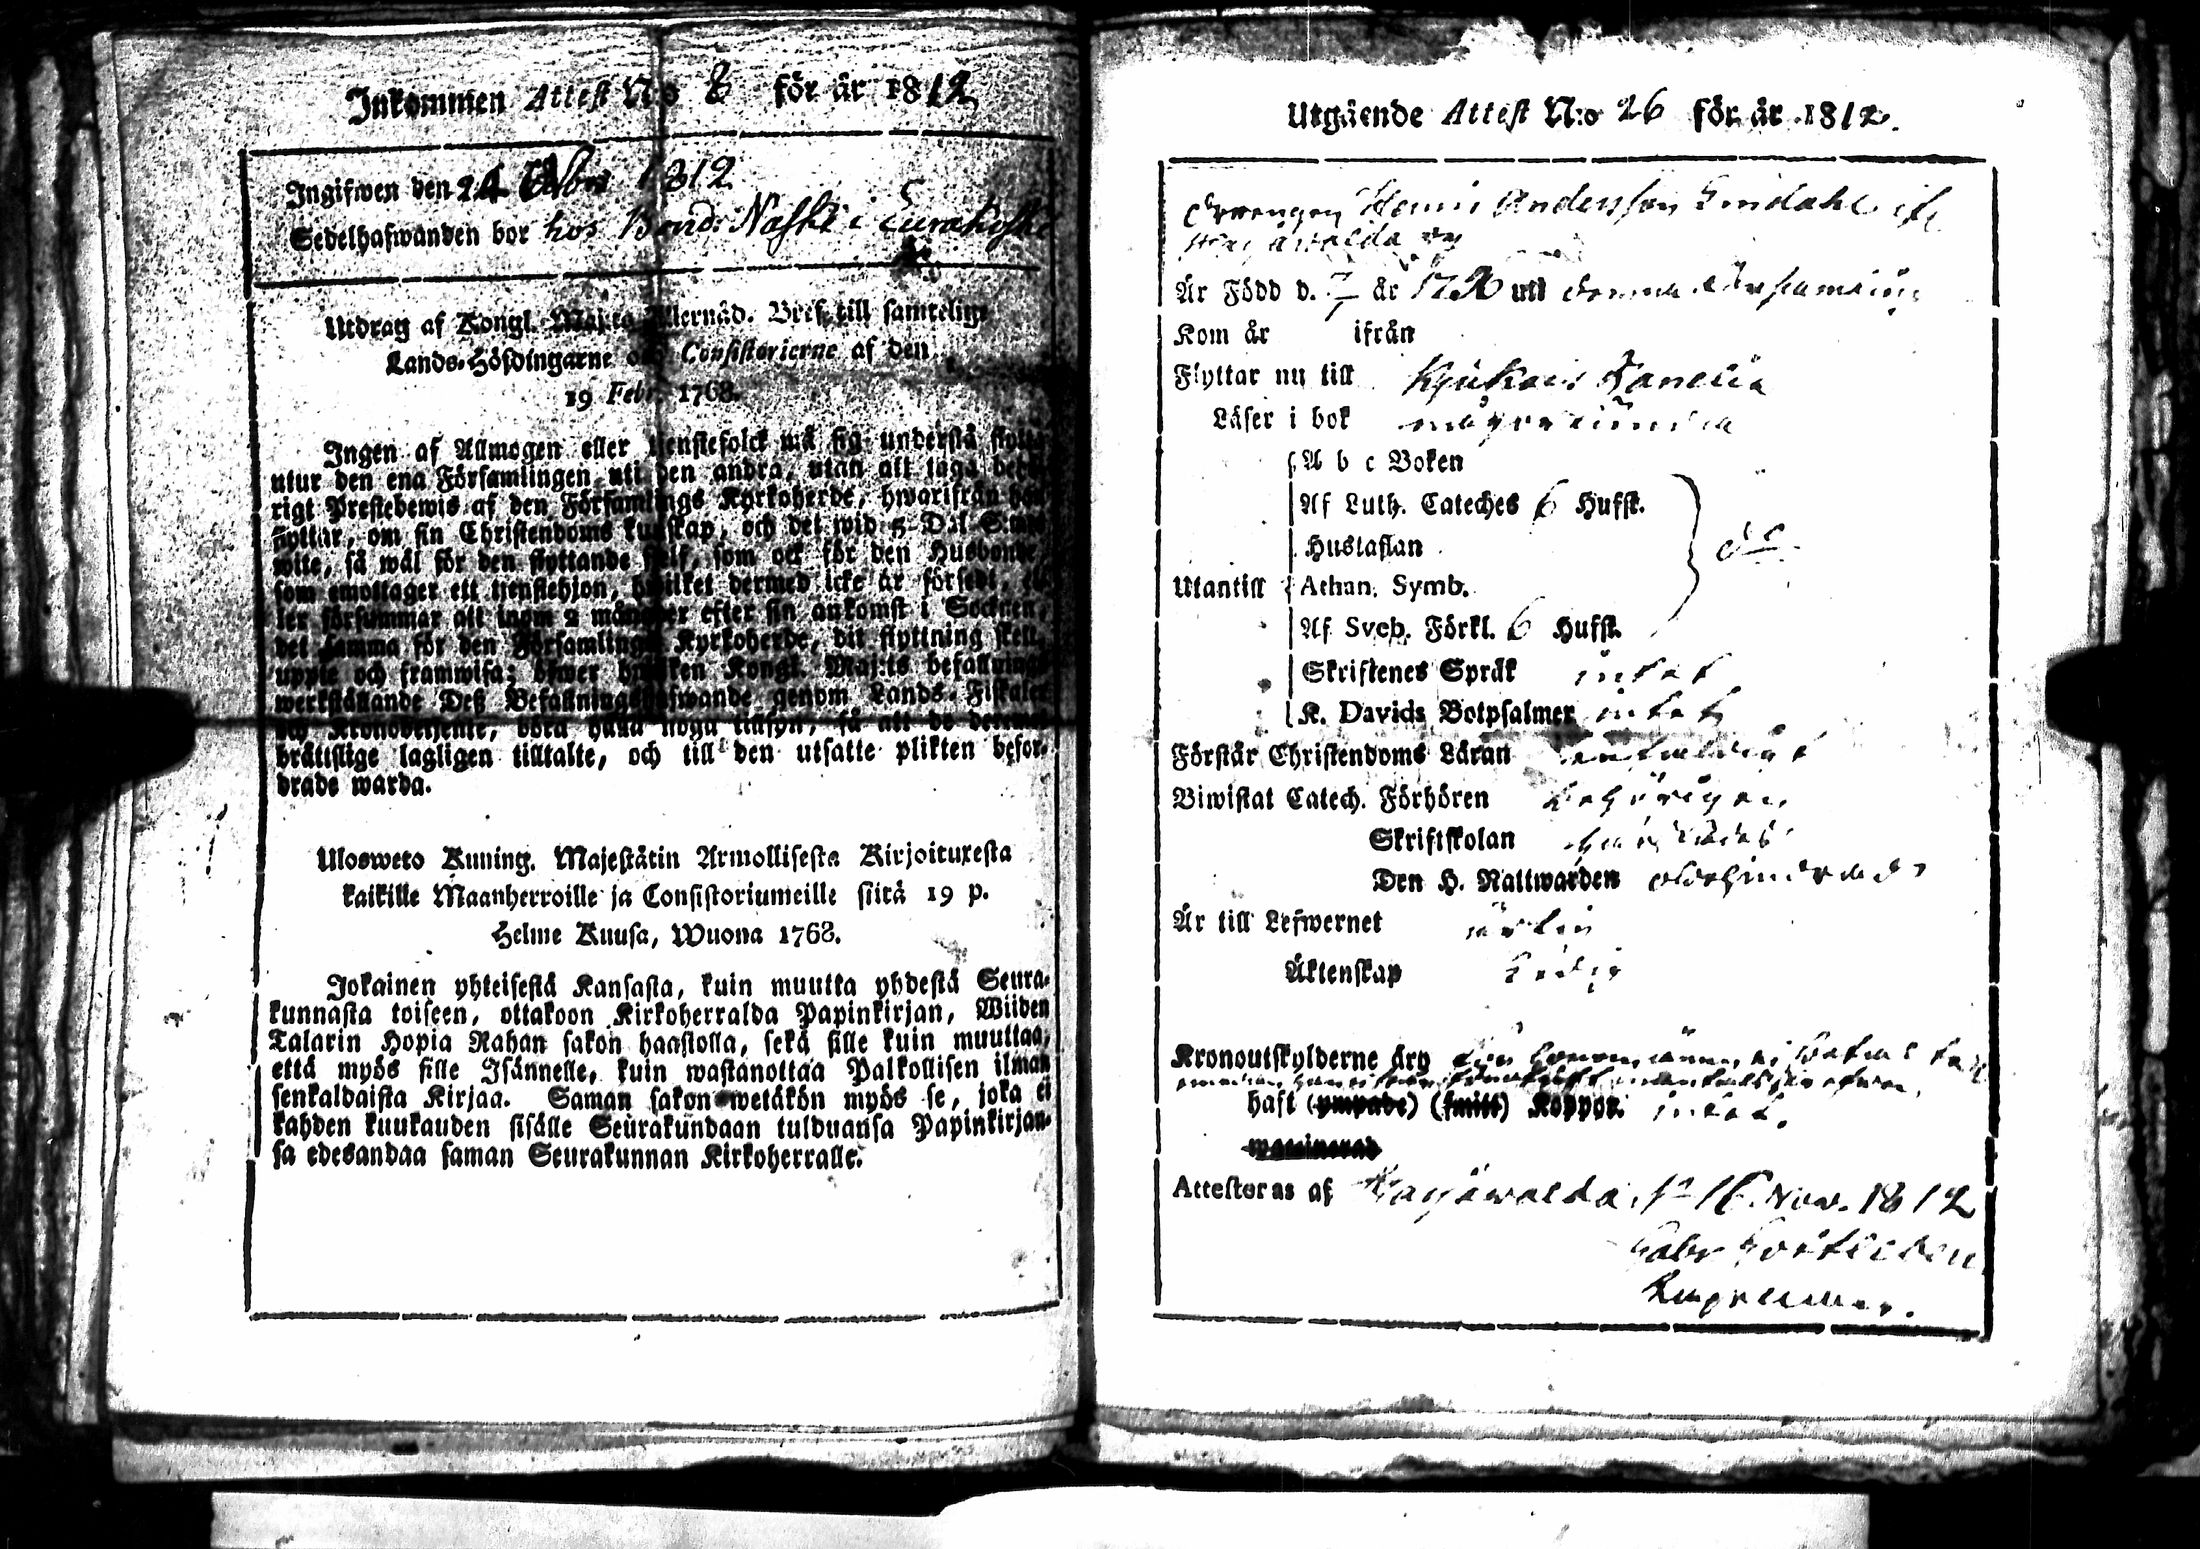 Inkommen Attest N:o 8 för år 1812
Ingifwen den 24 1812
Sedelhafwanden bor hos Bond: Naski i
Utdrag af Kongl. Maj:ts Allernåd. Bref till samtelige
Lands-Höfdingarne och Consistorierne af den
19 Febr. 1768.
Ingen af Allmogen eller tjenstefolck må sig understå flytta
utur den ena Församlingen uti den andra, utan att taga behö-
rigt Prestebewis af den Församlings Kyrkoherde, hwarifrån han
flyttar, om sin Christendoms kunskap, och det wid 5 Dal. S:mts
wite, så wäl för den flyttande sielf, som ock för den Husbonde,
som emottager ett tjenstehjon, hwilket dermed icke är försedt, el-
ler försummar att inom 2 månader efter sin ankomst i Socknen,
det samma för den Församlings Kyrkoherde, dit flyttning skett,
uppte och framwisa; öfwer hwilken Kongl. Maj:ts befallnings
werkställande Deß Befallningshafwande genom Lands-Fiskaler
och Kronobetjente, böra hålla noga tillsyn, så att de dermed
brätislige lagligen tilltalte, och till den utsatte plikten befor-
drade warda.
Ulosweto Kuning. Majestätin Armollisesta Kirjoituxesta
kaikille Maanherroille ja Consistoriumeille siitä 19 p.
Helme Kuusa, Wuona 1768.
Jokainen yhteisestä Kansasta, kuin muutta yhdestä Seura-
kunnasta toiseen, ottakoon Kirkoherralda Papinkirjan, Wiiden
Talarin Hopia Rahan sakon haastolla, sekä sille kuin muuttaa,
että myös sille Isännelle, kuin wastanottaa Palkollisen ilman
senkaldaista Kirjaa. Saman sakon wetäkön myös se, joka ei
kahden kuukauden sisälle Seurakundaan tulduansa Papinkirjan-
sa edesandaa saman Seurakunnan Kirkoherralle.
Utgående Attest N:o 26 för år 1812.
Drengen Henric Andersson Lindahl if:
Är Född d. 7 år 1790 uti denna Församling
Kom år ifrån
Flyttar nu till Kjukais
Läser i bok
A b c Boken
Af Luth. Cateches 6 Hufst.
Hustaflan
Utantill Athan. Symb.
Af Sveb. Förkl. 6 Hufst.
Skriftenes Språk intet
K. Davids Botpsalmer intet
Förstår Christendoms Läran enfaldigt
Biwistat Catech. Förhören behörigen
Skriftskolan
Den H. Nattwarden obehindrad
Är till Lefwernet ärlig
Äktenskap ledig
Kronoutskylderne äro
haft (ympade) (smitt) Koppor. intet.
waccinerad
Attesteras af d. 16 Nov. 1812